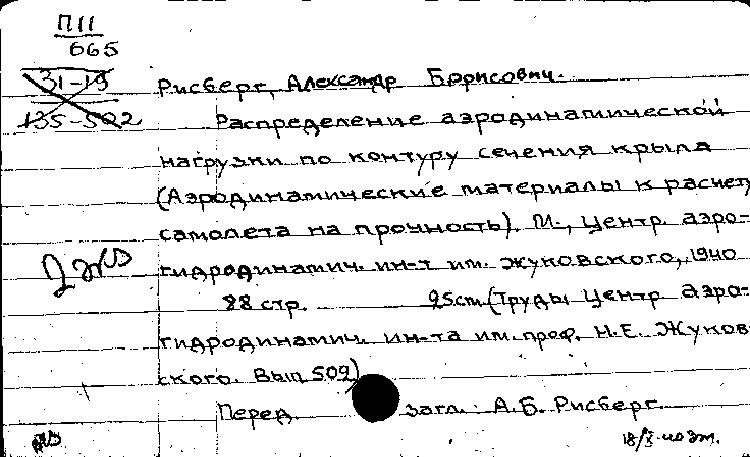 П11
665
31-19
135-502
Рисберг, Александр Борисович.
Распределение аэродинамической
нагрузки по контуру сечения крыла
(Аэродинамические материалы к расчету
самолета на прочность). М., Центр. аэро-
гидродинамич. ин-т им. Жуковского, 1940
88 стр. 25см. (Труды Центр аэро-
гидродинамич. ин-та им. проф. Н.Е. Жуков-
ского. Вып 509)
Перед. загл.: А.Б. Рисберг.